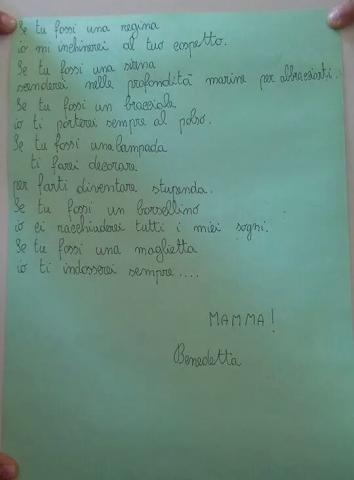 Se tu fossi una regina
io mi inchinerei al tuo cospetto.
Se tu fossi una sirena
scenderei nelle profondità marine per abbracciarti.
Se tu fossi un bracciale
io ti porterei sempre al polso.
Se tu fossi una lampada
ti farei decorare
per farti diventare stupenda.
Se tu fossi un borsellino
io ci racchiuderei tutti i miei sogni.
Se tu fossi una maglietta
io ti indosserei sempre....
MAMMA!
Benedetta